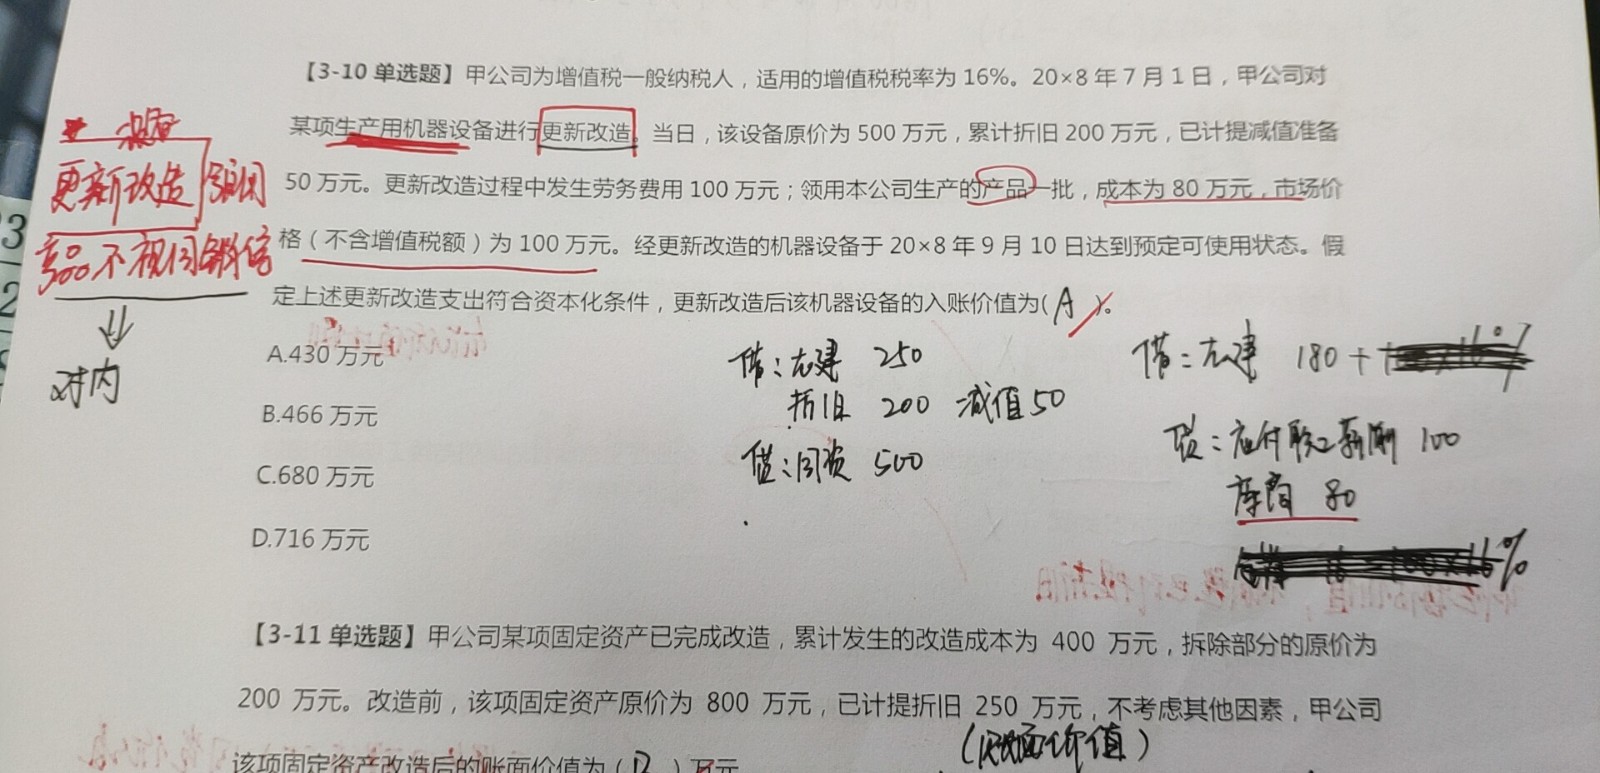 【3-10 单选题】甲公司为增值税一般纳税人，适用的增值税税率为 16%。20×8 年 7 月 1 日，甲公司对
某项生产用机器设备进行更新改造。当日，该设备原价为 500 万元，累计折旧 200 万元，已计提减值准备
50 万元。更新改造过程中发生劳务费用 100 万元；领用本公司生产的产品一批，成本为 80 万元，市场价
格（不含增值税额）为 100 万元。经更新改造的机器设备于 20×8 年 9 月 10 日达到预定可使用状态。假
定上述更新改造支出符合资本化条件，更新改造后该机器设备的入账价值为(A)。
设备
更新改造 领用
产品不视同销售
对内
A.430 万元
B.466 万元
C.680 万元
D.716 万元
借：在建 250
折旧 200 减值 50
贷：固资 500
借：在建 180 +
贷：应付职工薪酬 100
库商 80
【3-11 单选题】甲公司某项固定资产已完成改造，累计发生的改造成本为 400 万元，拆除部分的原价为
200 万元。改造前，该项固定资产原价为 800 万元，已计提折旧 250 万元，不考虑其他因素，甲公司
(账面价值)
该项固定资产改造后的账面价值为（B）万元